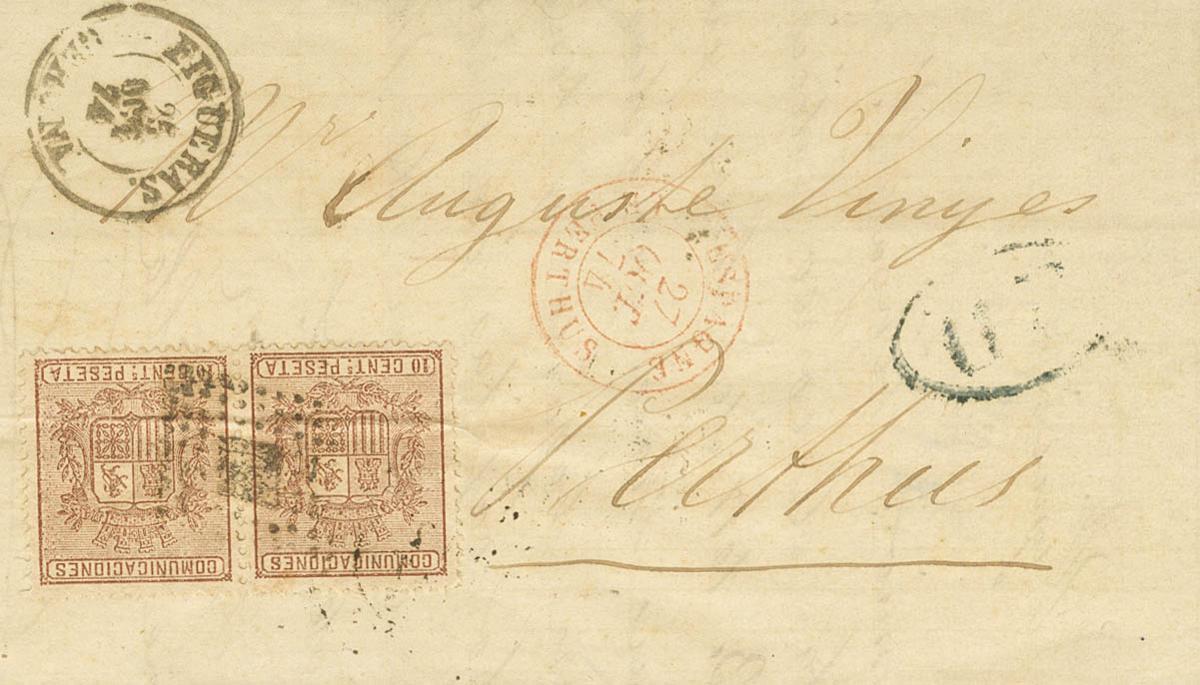 FIGUERAS.
26
OCT
74
Mr Auguste Vinyes
ESPAGNE
27
OCT
74
PERTHUS
Perthus
10 CENTS. PESETA
COMUNICACIONES
10 CENTS. PESETA
COMUNICACIONES